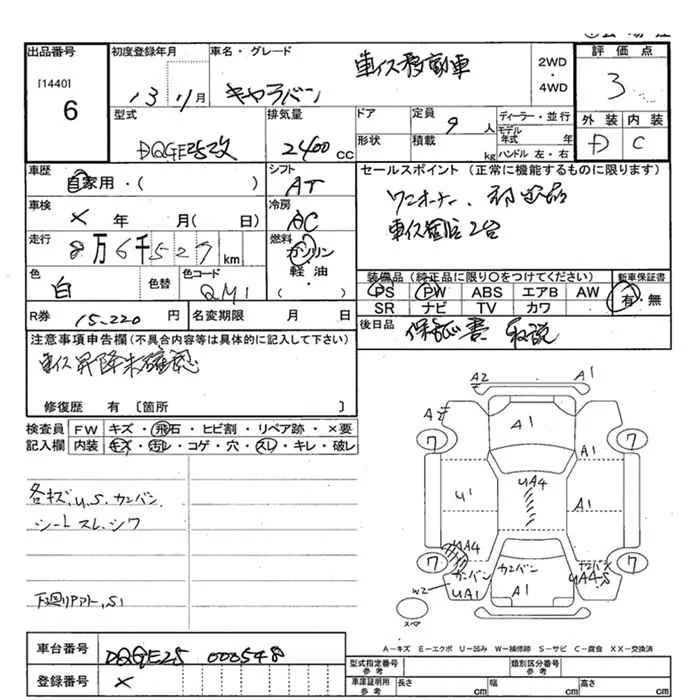 出品番号
[1440]
6
初度登録年月
13 11月
車名・グレード
キャラバン
車イス移動車
2WD
・
4WD
評価点
3
外装 内装
D C
型式
DQGE25改
排気量
2400 cc
ドア
形状
定員
9人
積載
kg
ディーラー・並行
モデル年式 年
ハンドル 左・右
車歴
自家用・( )
シフト
AT
セールスポイント(正常に機能するものに限ります)
ワンオーナー.
車イス固定2台
車検
× 年 月( 日)
冷房
AC
走行
8万6千527km
燃料
ガソリン
軽油
( )
色
白
色替
色コード
QM1
装備品(純正品に限り○をつけてください)
PS PW ABS エアB AW
SR ナビ TV カワ
新車保証書
有・無
R券
15,220 円
名変期限 月 日
後日品
保証書 取説
注意事項申告欄(不具合内容等は具体的に記入して下さい)
車イス昇降未確認
修復歴 有 [箇所 ]
検査員
記入欄
FW キズ・飛石・ヒビ割・リペア跡・×要
内装 キズ・汚レ・コゲ・穴・スレ・キレ・破レ
各キズ.U.S.カンバン
シートスレ.シワ
下廻りサビ,S1
A2
A1
A1
7
7
U1
UA4
A1
A1
7
7
UA4
カンバン
UA1
W2
カンバン
A1
カンバン
UA4.S
スペア
A−キズ E−エクボ U−凹み W−補修跡 S−サビ C−腐食 XX−交換済
車台番号
DQGE25 000548
登録番号
×
型式指定番号
参考
類別区分番号
参考
車庫証明用
参考
長さ cm
幅 cm
高さ cm